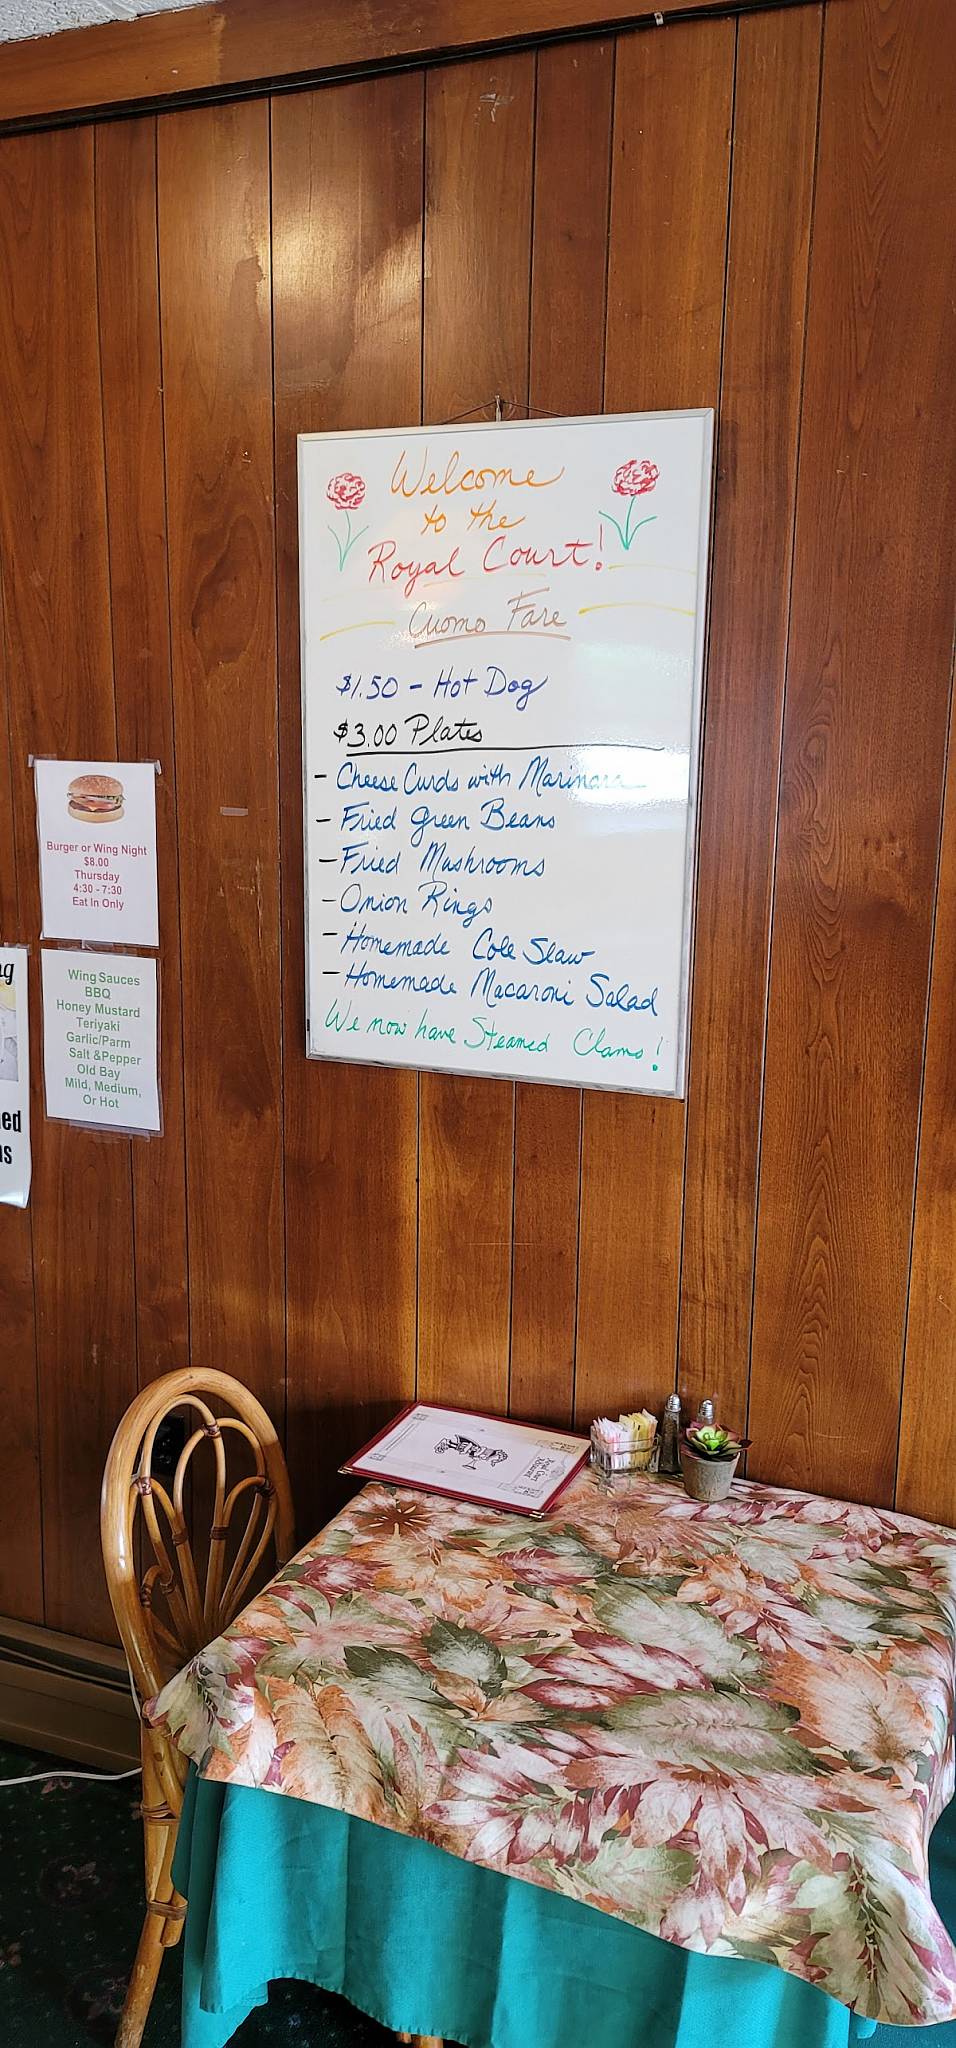 Welcome
to the
Royal Court!
Cuomo Fare
$1.50 - Hot Dog
$3.00 Plates
- Cheese Curds with Marinara
- Fried Green Beans
- Fried Mushrooms
- Onion Rings
- Homemade Cole Slaw
- Homemade Macaroni Salad
We now have Steamed Clams!
Burger or Wing Night
$8.00
Thursday
4:30 - 7:30
Eat In Only
Wing Sauces
BBQ
Honey Mustard
Teriyaki
Garlic/Parm
Salt &Pepper
Old Bay
Mild, Medium,
Or Hot
Royal Court